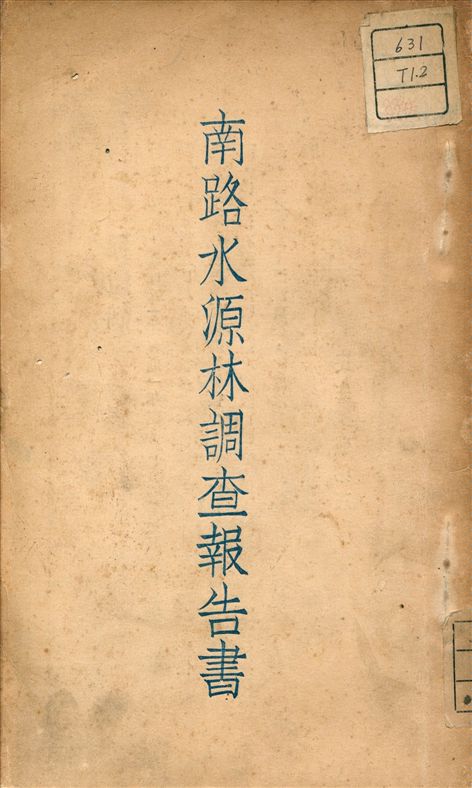 631
T1.2
南路水源林調查報告書